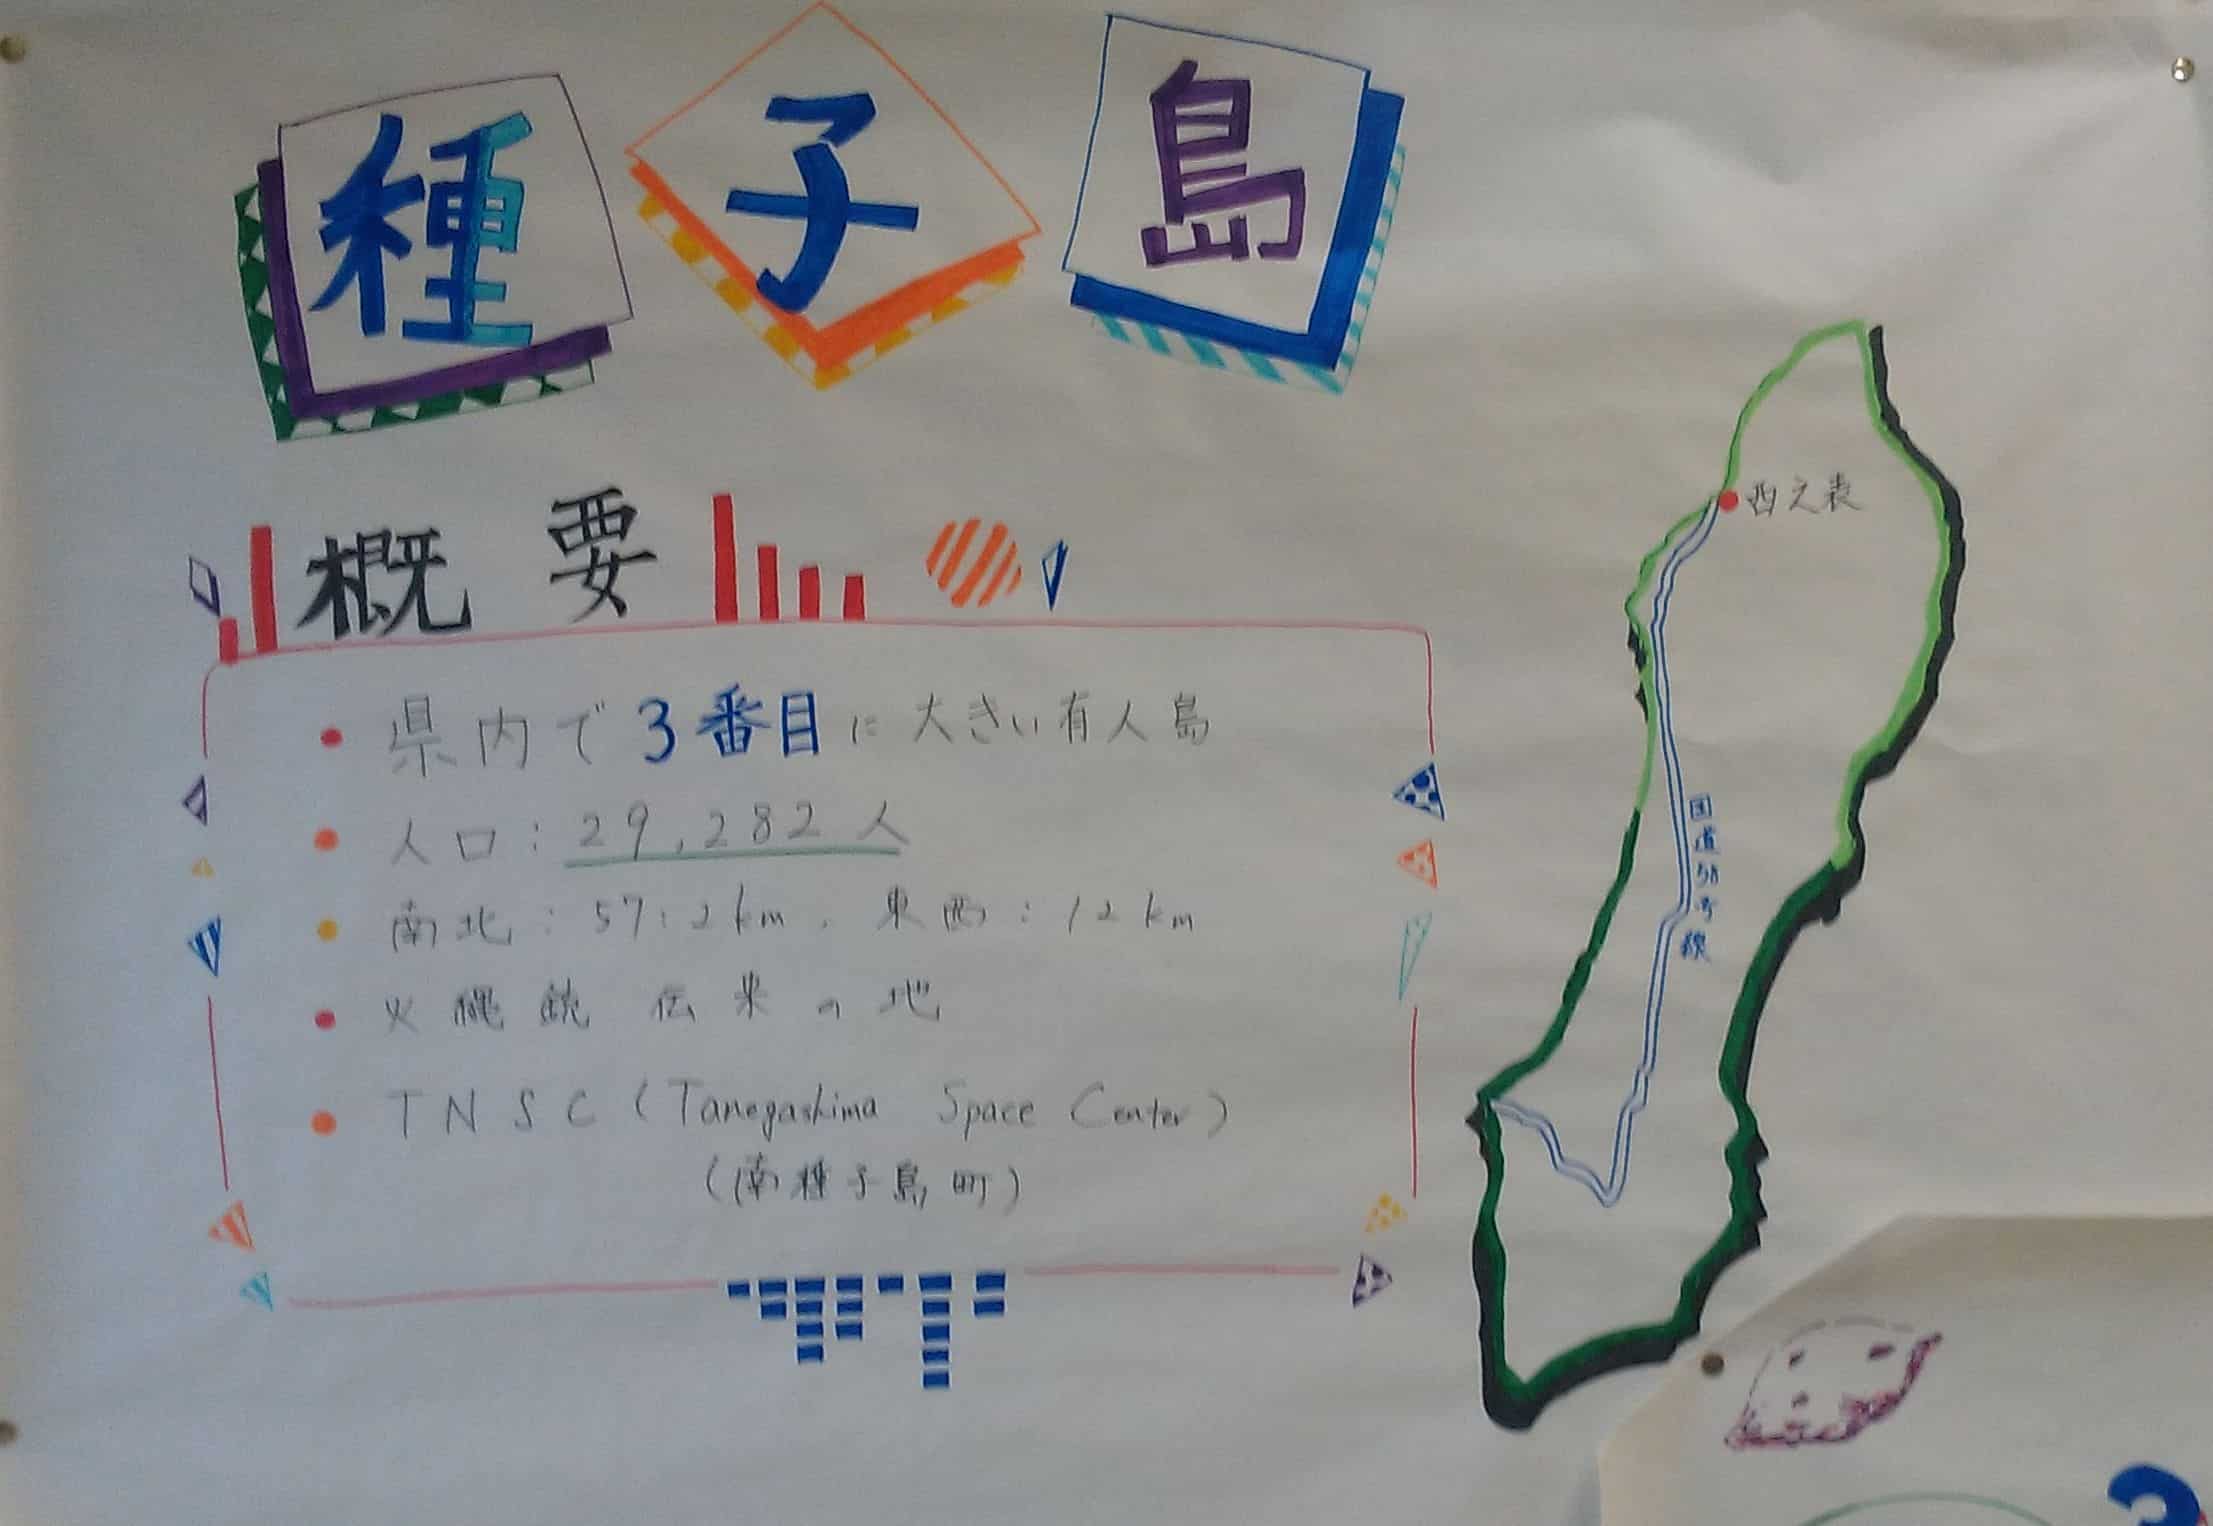 種子島
概要
・県内で3番目に大きい有人島
・人口：29,282人
・南北：57.2km、東西：12km
・火縄銃伝来の地
・TNSC（Tanegashima Space Center）
（南種子島町）
西之表
国道58号線